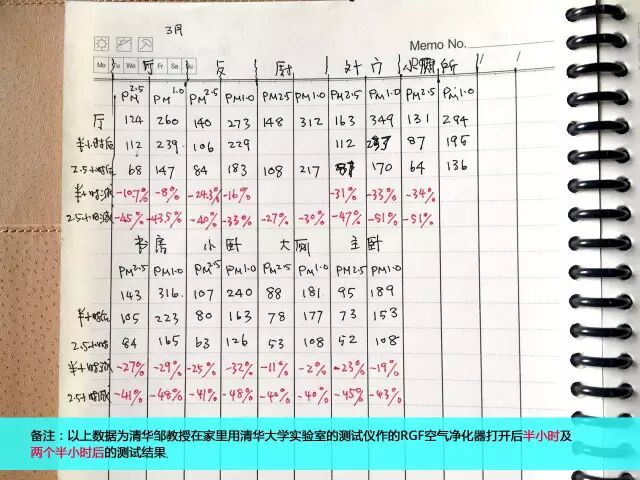 3月
Memo No.
Mo Tu We Fr Sa Su
厅 厨 小厕所
PM2.5 PM1.0 PM2.5 PM1.0 PM2.5 PM1.0 PM2.5 PM1.0 PM2.5 PM1.0
厅 124 260 140 273 148 312 163 349 131 294
半小时后 112 239 106 229 112 87 195
2.5小时后 68 147 84 183 108 217 170 64 136
半小时减 -10.7% -8% -24.3% -16% -31% -33% -34%
2.5小时减 -45% -43.5% -40% -33% -27% -30% -47% -51% -51%
书房 小卧 大厕 主卧
PM2.5 PM1.0 PM2.5 PM1.0 PM2.5 PM1.0 PM2.5 PM1.0
143 316 107 240 88 181 95 189
半小时后 105 223 80 163 78 177 73 153
2.5小时 84 165 63 126 53 108 52 108
半小时减 -27% -29% -25% -32% -11% -2% -23% -19%
2.5小时减 -41% -48% -41% -48% -40% -40% -45% -43%
备注：以上数据为清华邹教授在家里用清华大学实验室的测试仪作的RGF空气净化器打开后半小时及
两个半小时后的测试结果